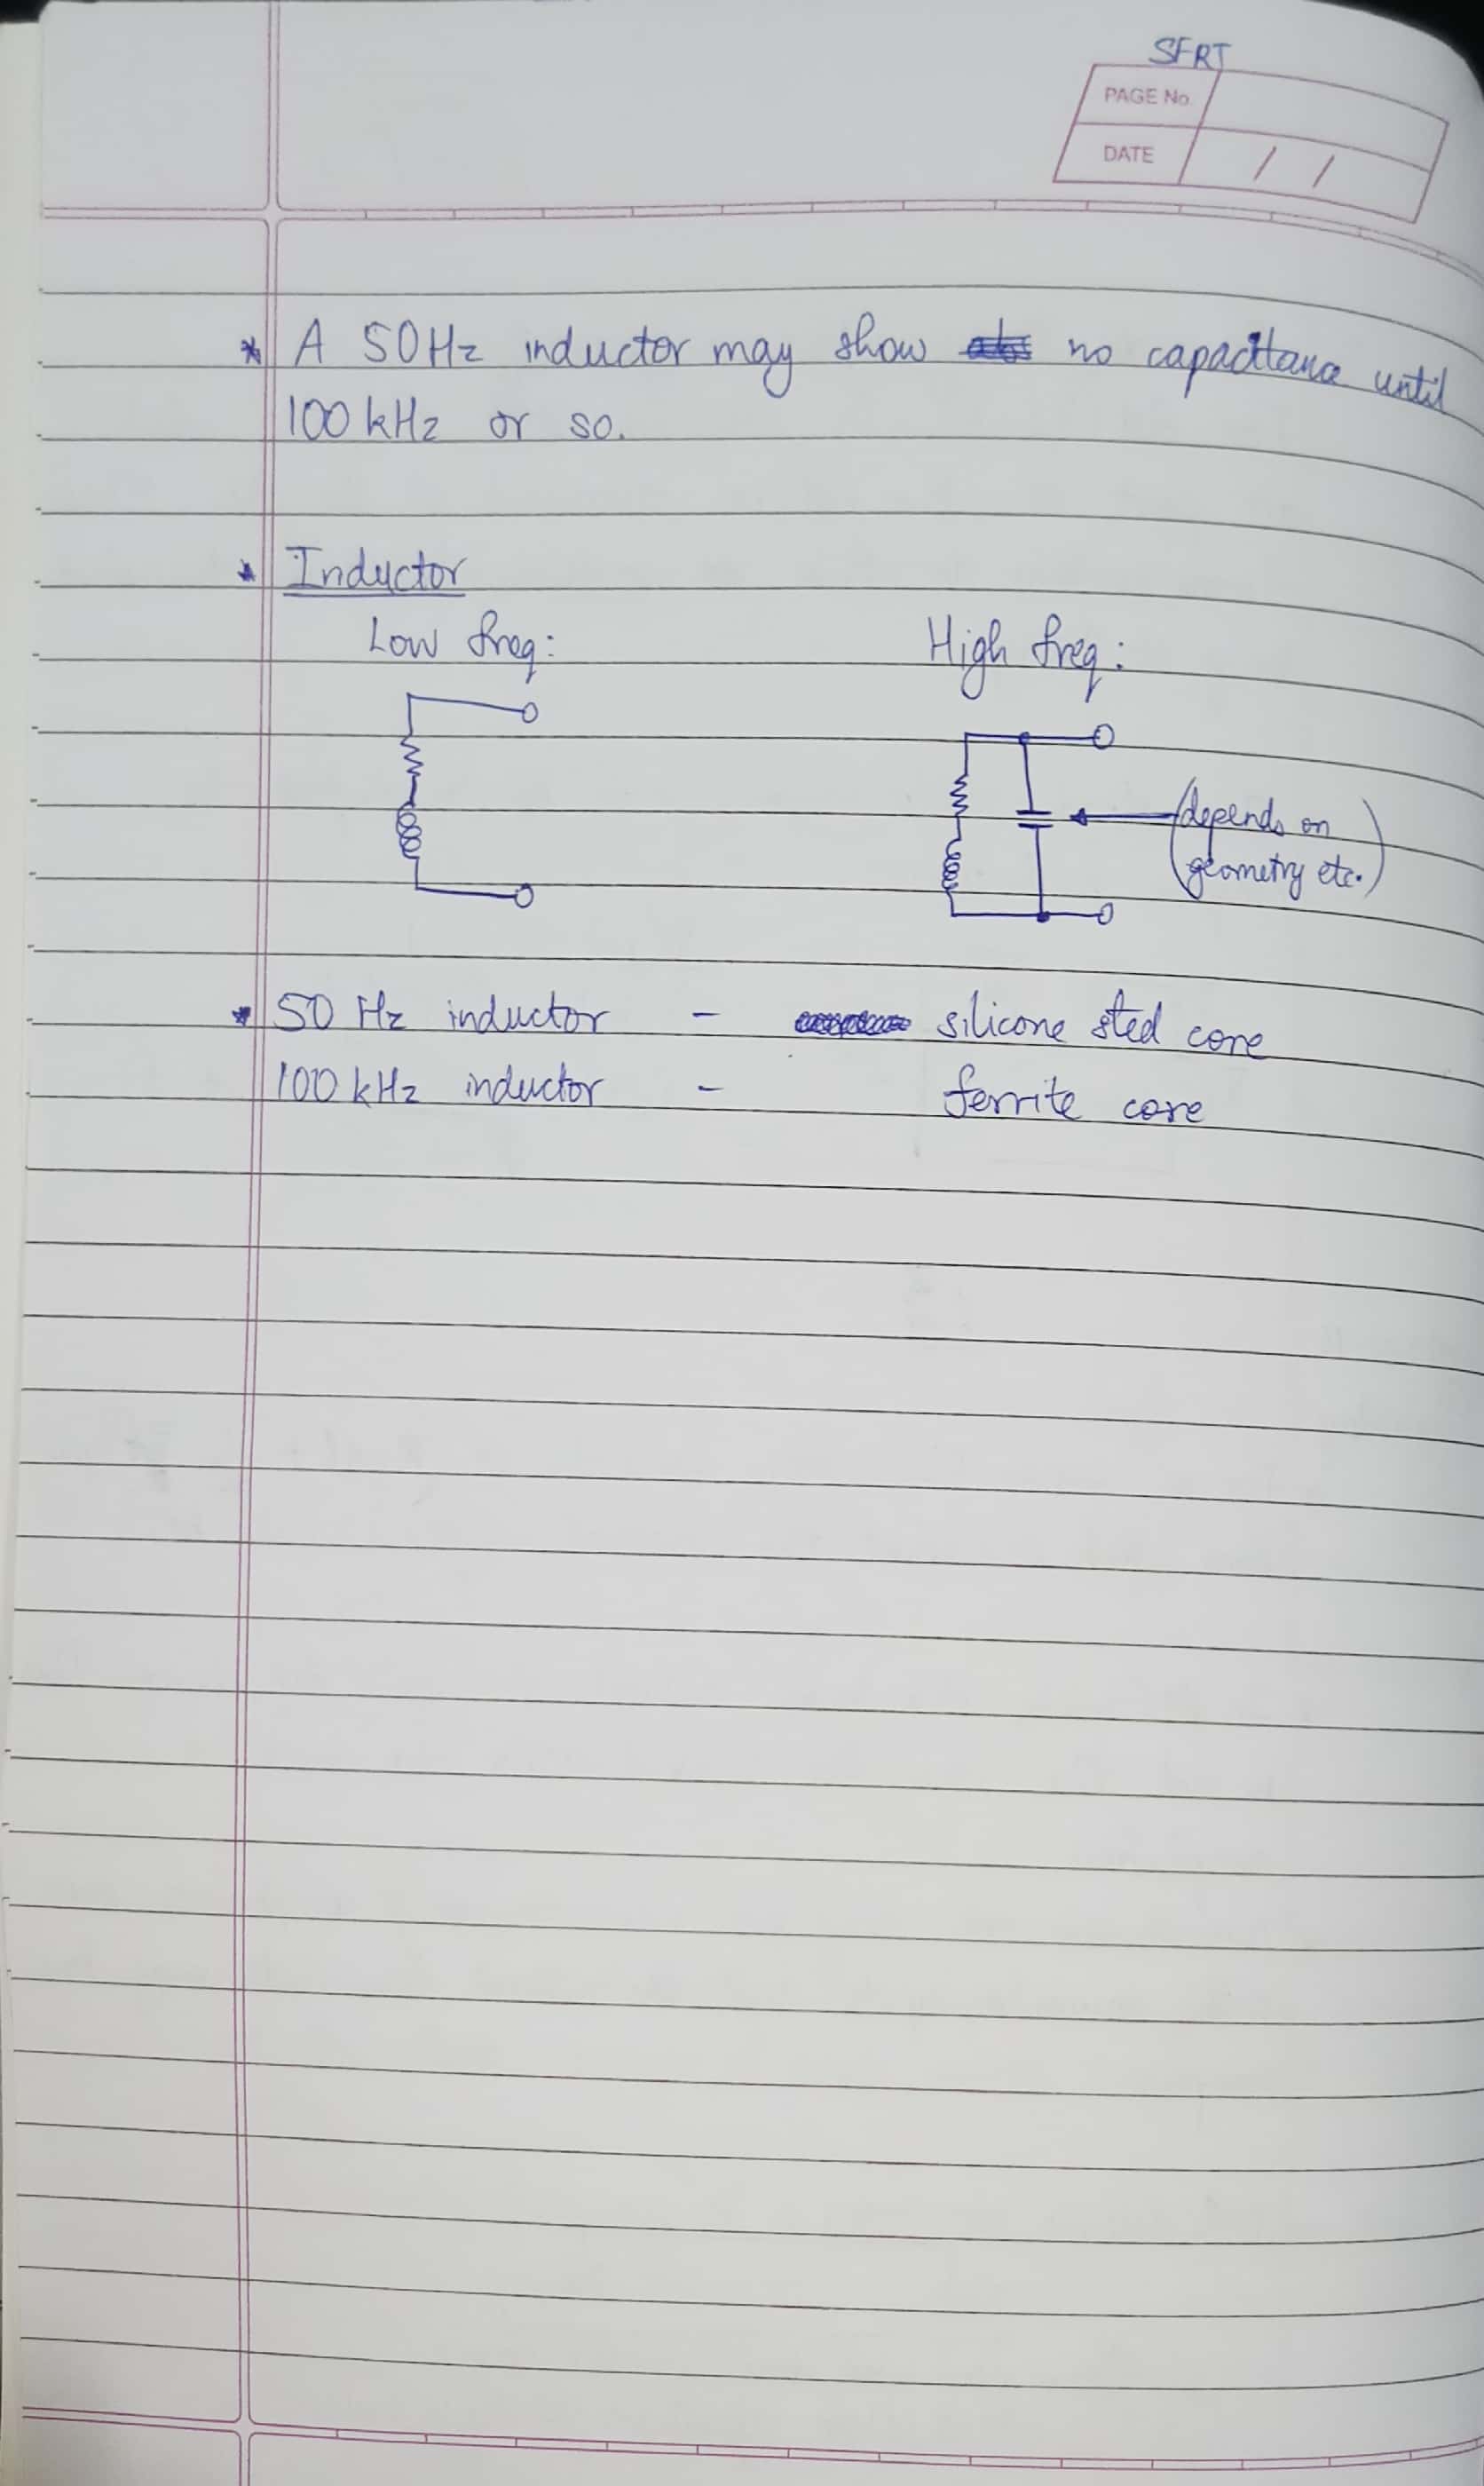 SFRT
PAGE No.
DATE / /
* A 50Hz inductor may show no capacitance until
100 kHz or so.
* Inductor
Low freq:
High freq:
(depends on
geometry etc.)
* 50 Hz inductor - silicone steel core
100 kHz inductor - ferrite core